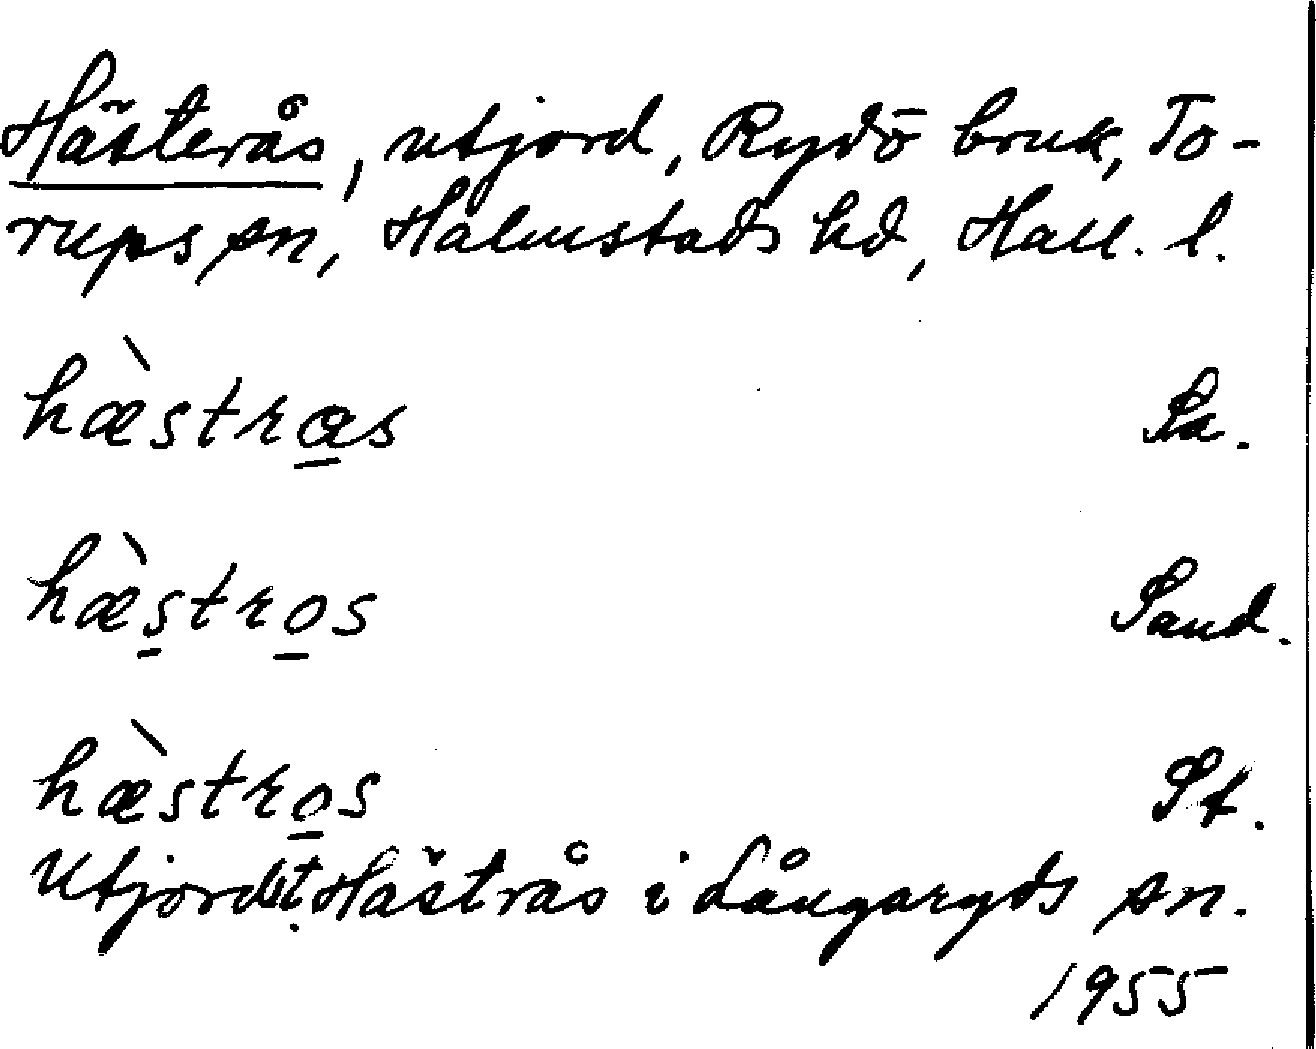 Hästerås, utjord, Rydö bruk, To-
rups sn, Halmstads hd, Hall. l.
hæ̀strꜵs Sa.
hæ̀s̠tro̠s Sand.
hæ̀stro̠s St.
Utjord t. Hästrås i Långaryds sn.
1955